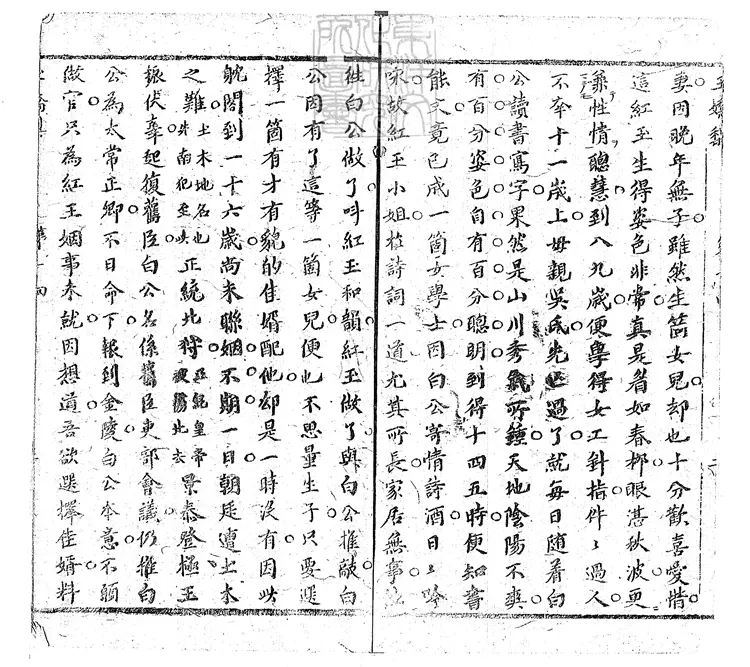 妻因晚年無子雖然生箇女兒却也十分歡喜愛惜
這紅玉生得姿色非常真是眉如春柳眼湛秋波更
兼性情聰慧到八九歲便學得女工針指件〻過人
不幸十一歲上母親吳氏先亡過了就每日随着白
公讀書寫字果然是山川秀氣所鍾天地陰陽不爽
有百分姿色自有百分聰明到得十四五時便知書
能文竟已成一箇女學士因白公寄情詩酒日〻吟
咏故紅玉小姐於詩詞一道尤其所長家居無事往
往白公做了叫紅玉和韻紅玉做了與白公推敲白
公因有了這等一箇女兒便也不思量生子只要選
擇一箇有才有貌的佳婿配他却是一時没有因此
躭閣到一十六歲尚未聯姻不期一日朝廷遭土木
之難土木地名也南犯至此正統北狩皇帝被虜北去景泰登極王
振伏辜起復舊臣白公名係舊臣吏部會議仍推白
公為太常正卿不日命下報到金陵白公本意不願
做官只為紅玉姻事未就因想道吾欲選擇佳婿料